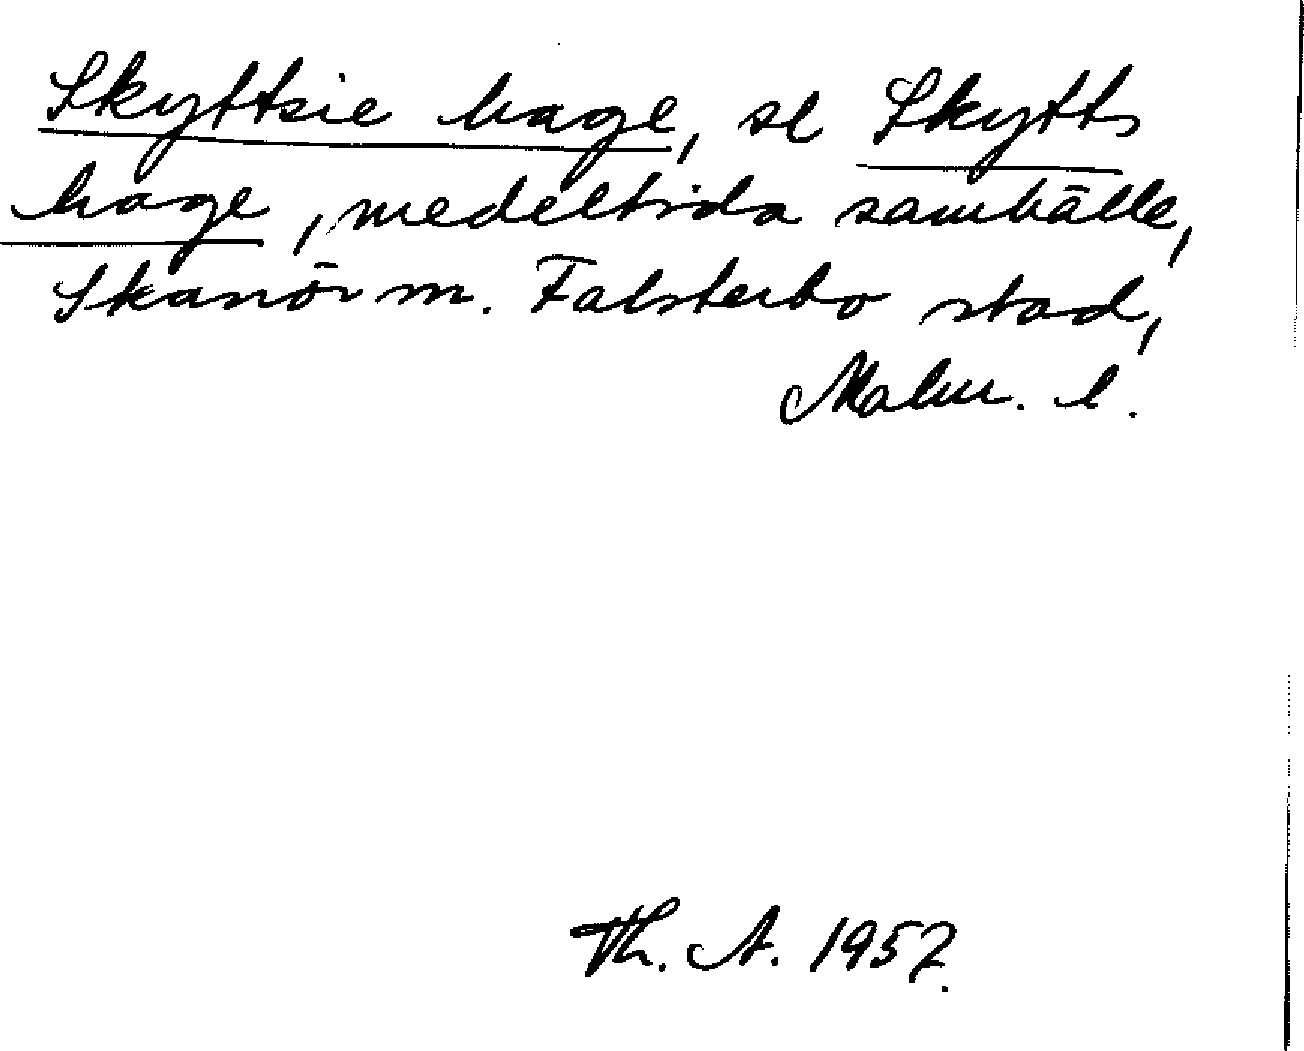 Skyttsie hage, se Skytts
hage, medeltida samhälle,
Skanör m. Falsterbo stad,
Malm. l.
Th. A. 1957.